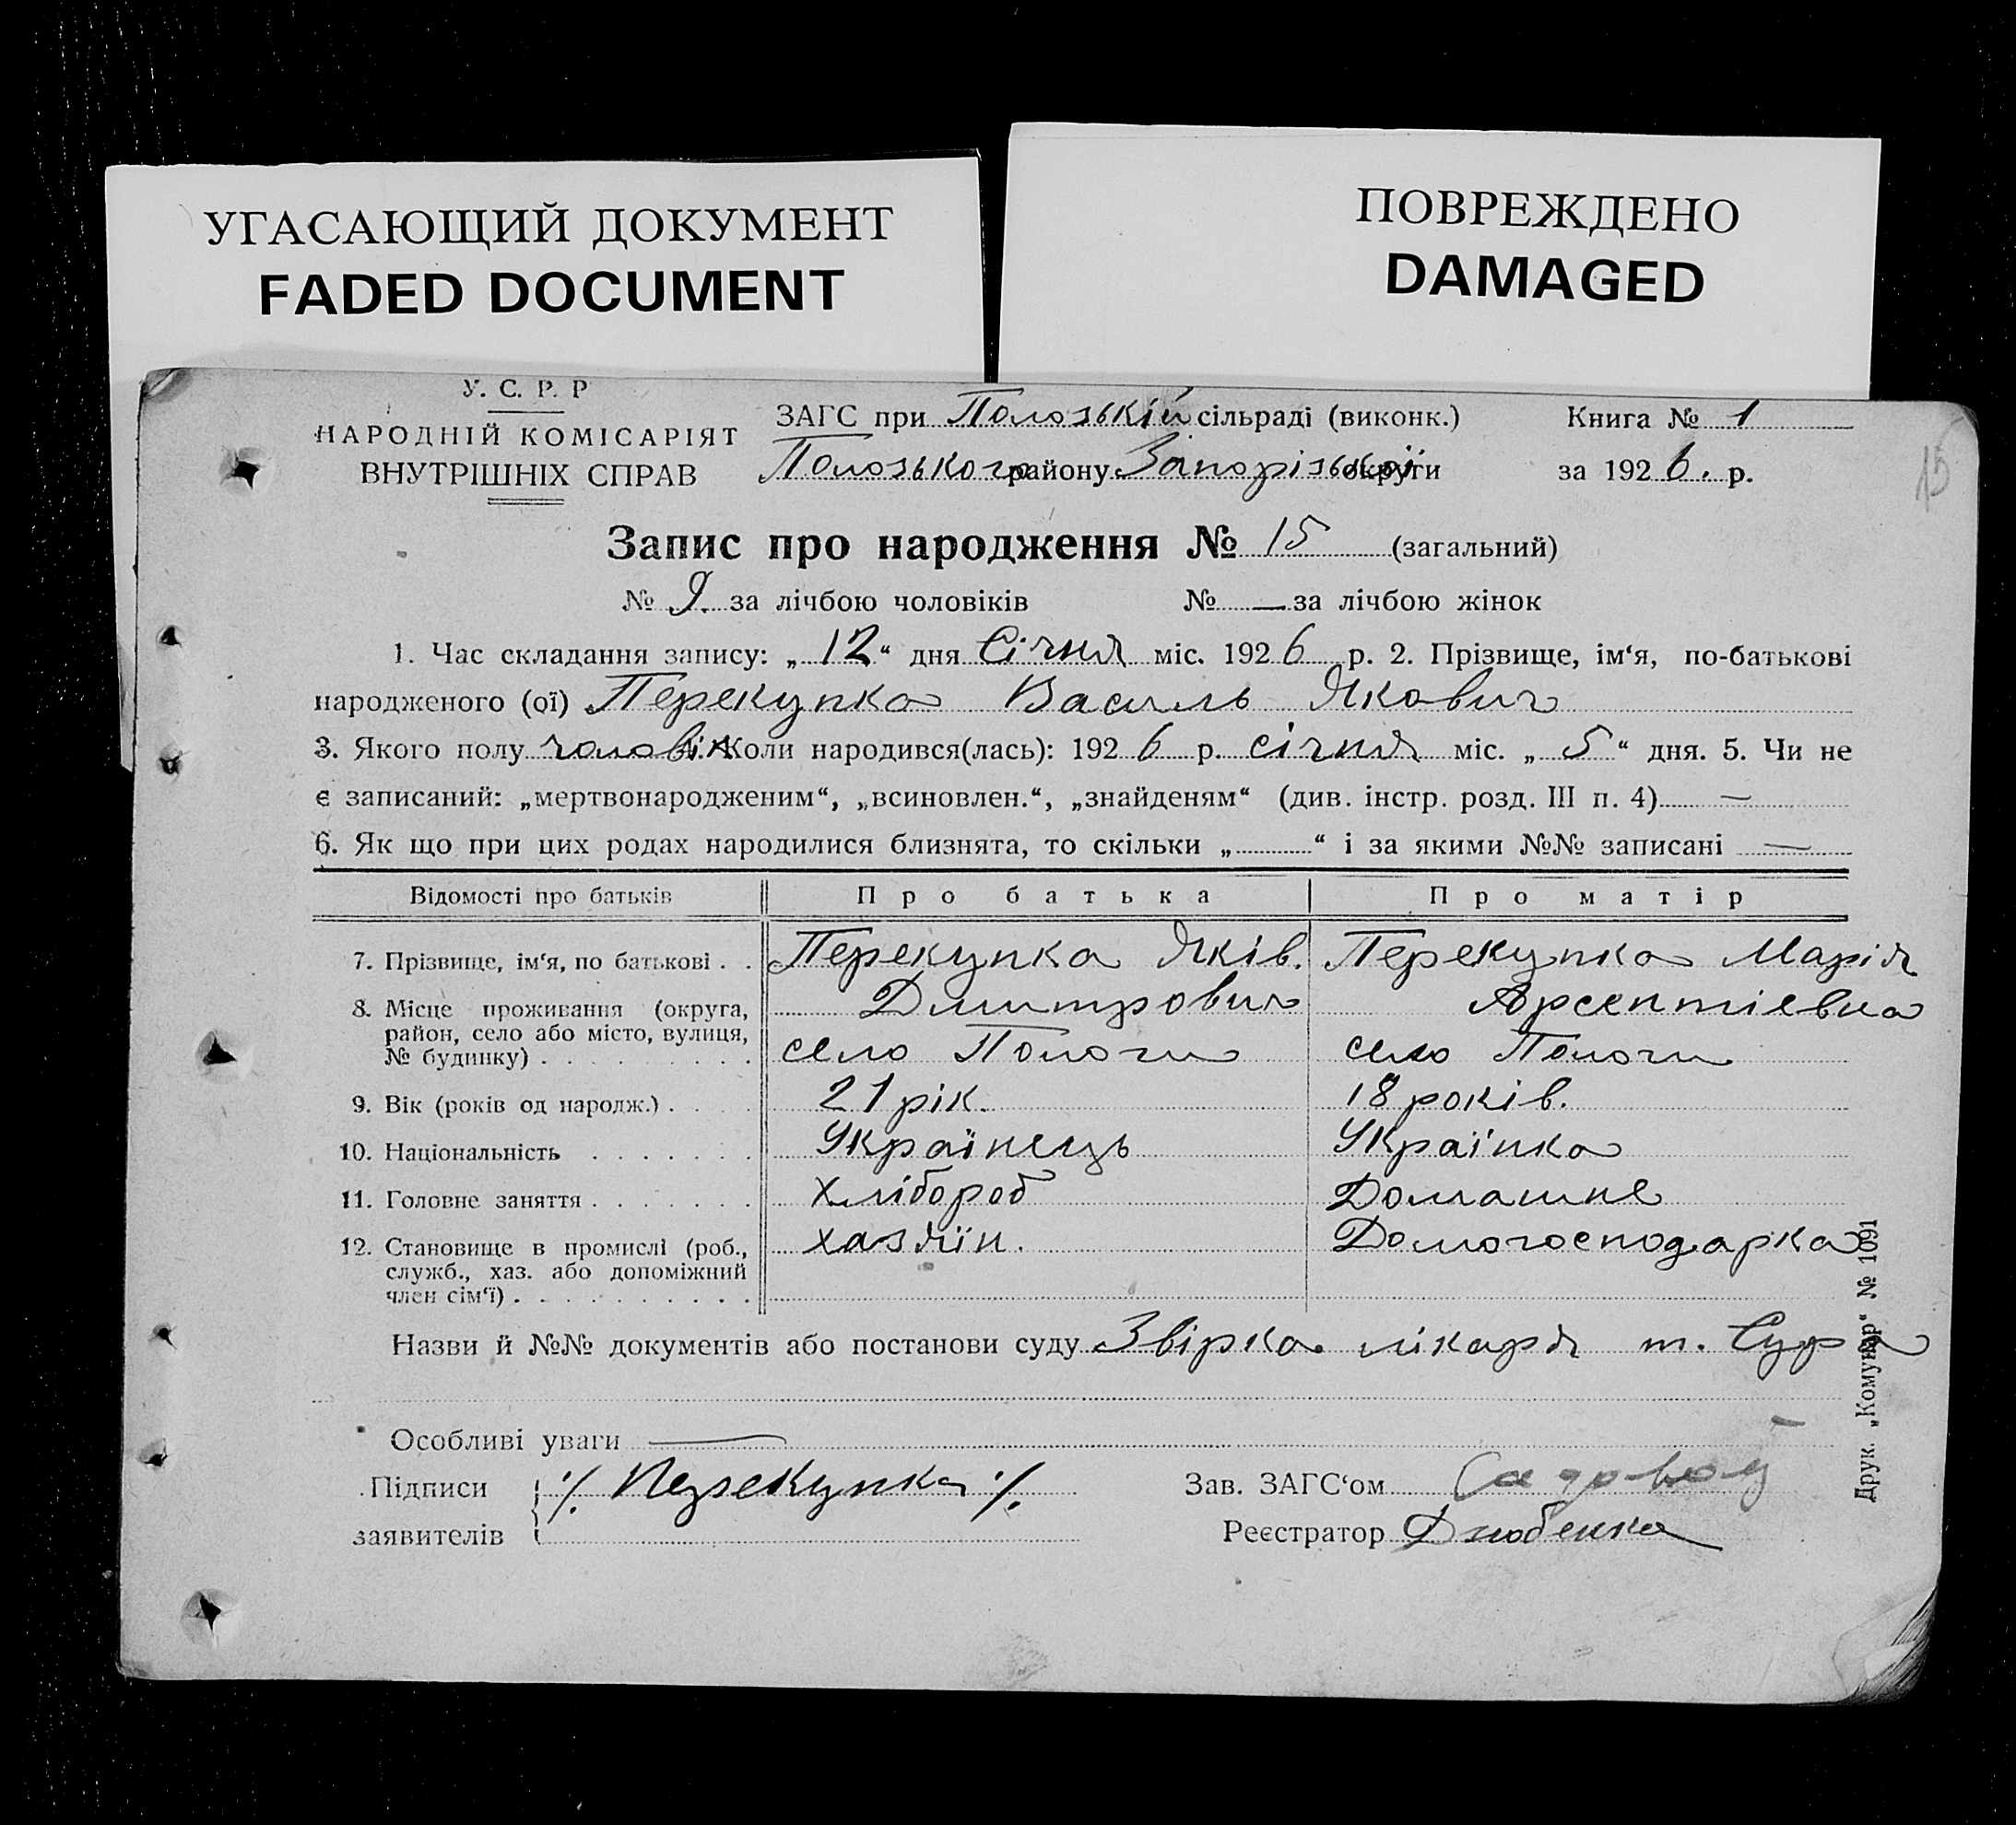 УГАСАЮЩИЙ ДОКУМЕНТ
FADED DOCUMENT
ПОВРЕЖДЕНО
DAMAGED
У. С. Р. Р
НАРОДНІЙ КОМІСАРІЯТ
ВНУТРІШНІХ СПРАВ
ЗАГС при Полозькій сільраді (виконк.)
Полозького району Запорізької округи
Книга № 1
за 1926. р.
15
Запис про народження № 15 (загальний)
№ 9. за лічбою чоловіків № — за лічбою жінок
1. Час складання запису: „12“ дня Січня міс. 1926 р. 2. Прізвище, ім‘я, по-батькові
народженого (ої) Перекупка Василь Якович
3. Якого полу чоловік 4. Коли народився(лась): 1926 р. січня міс. „5“ дня. 5. Чи не
є записаний: „мертвонародженим“, „всиновлен.“, „знайденям“ (див. інстр. розд. III п. 4) —
6. Як що при цих родах народилися близнята, то скільки „ “ і за якими №№ записані —
Відомості про батьків Про батька Про матір
7. Прізвище, ім‘я, по батькові . . Перекупка Яків. Перекупка Марія
Дмитрович Арсентіевна
8. Місце проживання (округа,
район, село або місто, вулиця,
№ будинку) . . . . . . . . село Пологи село Пологи
9. Вік (років од народж.) . . . . 21 рік. 18 років.
10. Національність . . . . . . . Українець Українка
11. Головне заняття . . . . . . . Хлібороб Домашнє
12. Становище в промислі (роб., хазяїн. Домогосподарка
служб., хаз. або допоміжний
член сім‘ї) . . . . . . . . . .
Назви й №№ документів або постанови суду Звірка лікаря т. Сура
Особливі уваги —
Підписи ٪ Перекупка ٪
заявителів
Зав. ЗАГС‘ом
Реєстратор Дзюбенка
Друк. „Комунар“ № 1091